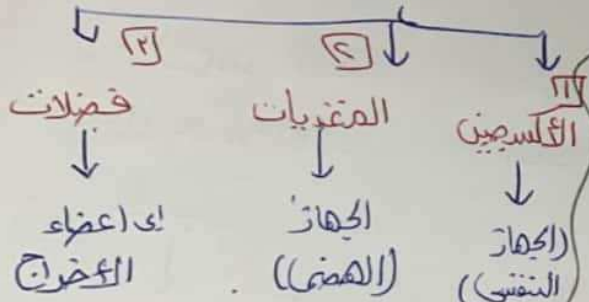 ١
الأكسجين
(الجهاز
التنفسي))
٢
المتغذيات
الجهاز
(الهضمي))
٣
فضلات
إى أعضاء
الأخراج